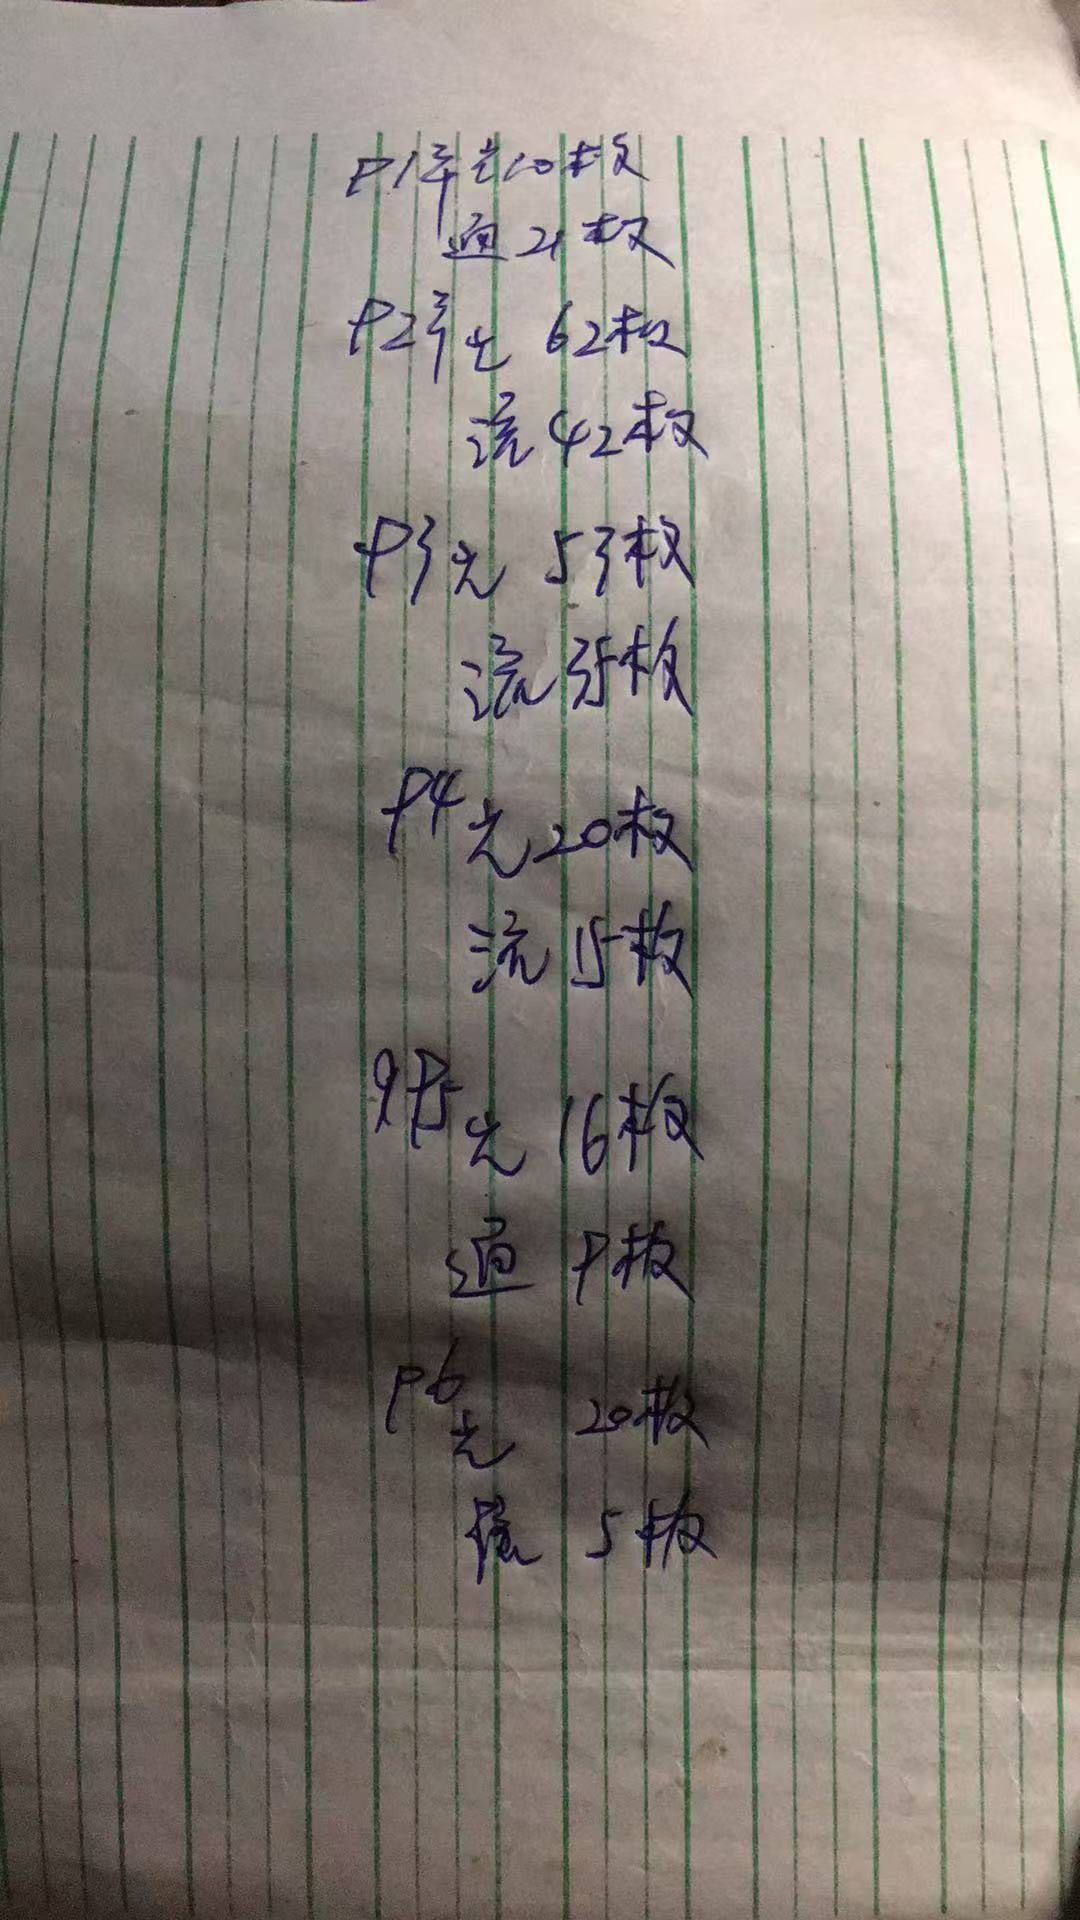 P1年光10枚
通21枚
P2年光 62枚
流42枚
P3光 53枚
流35枚
P4光20枚
流15枚
9P5光 16枚
通 P枚
P6光 20枚
5枚